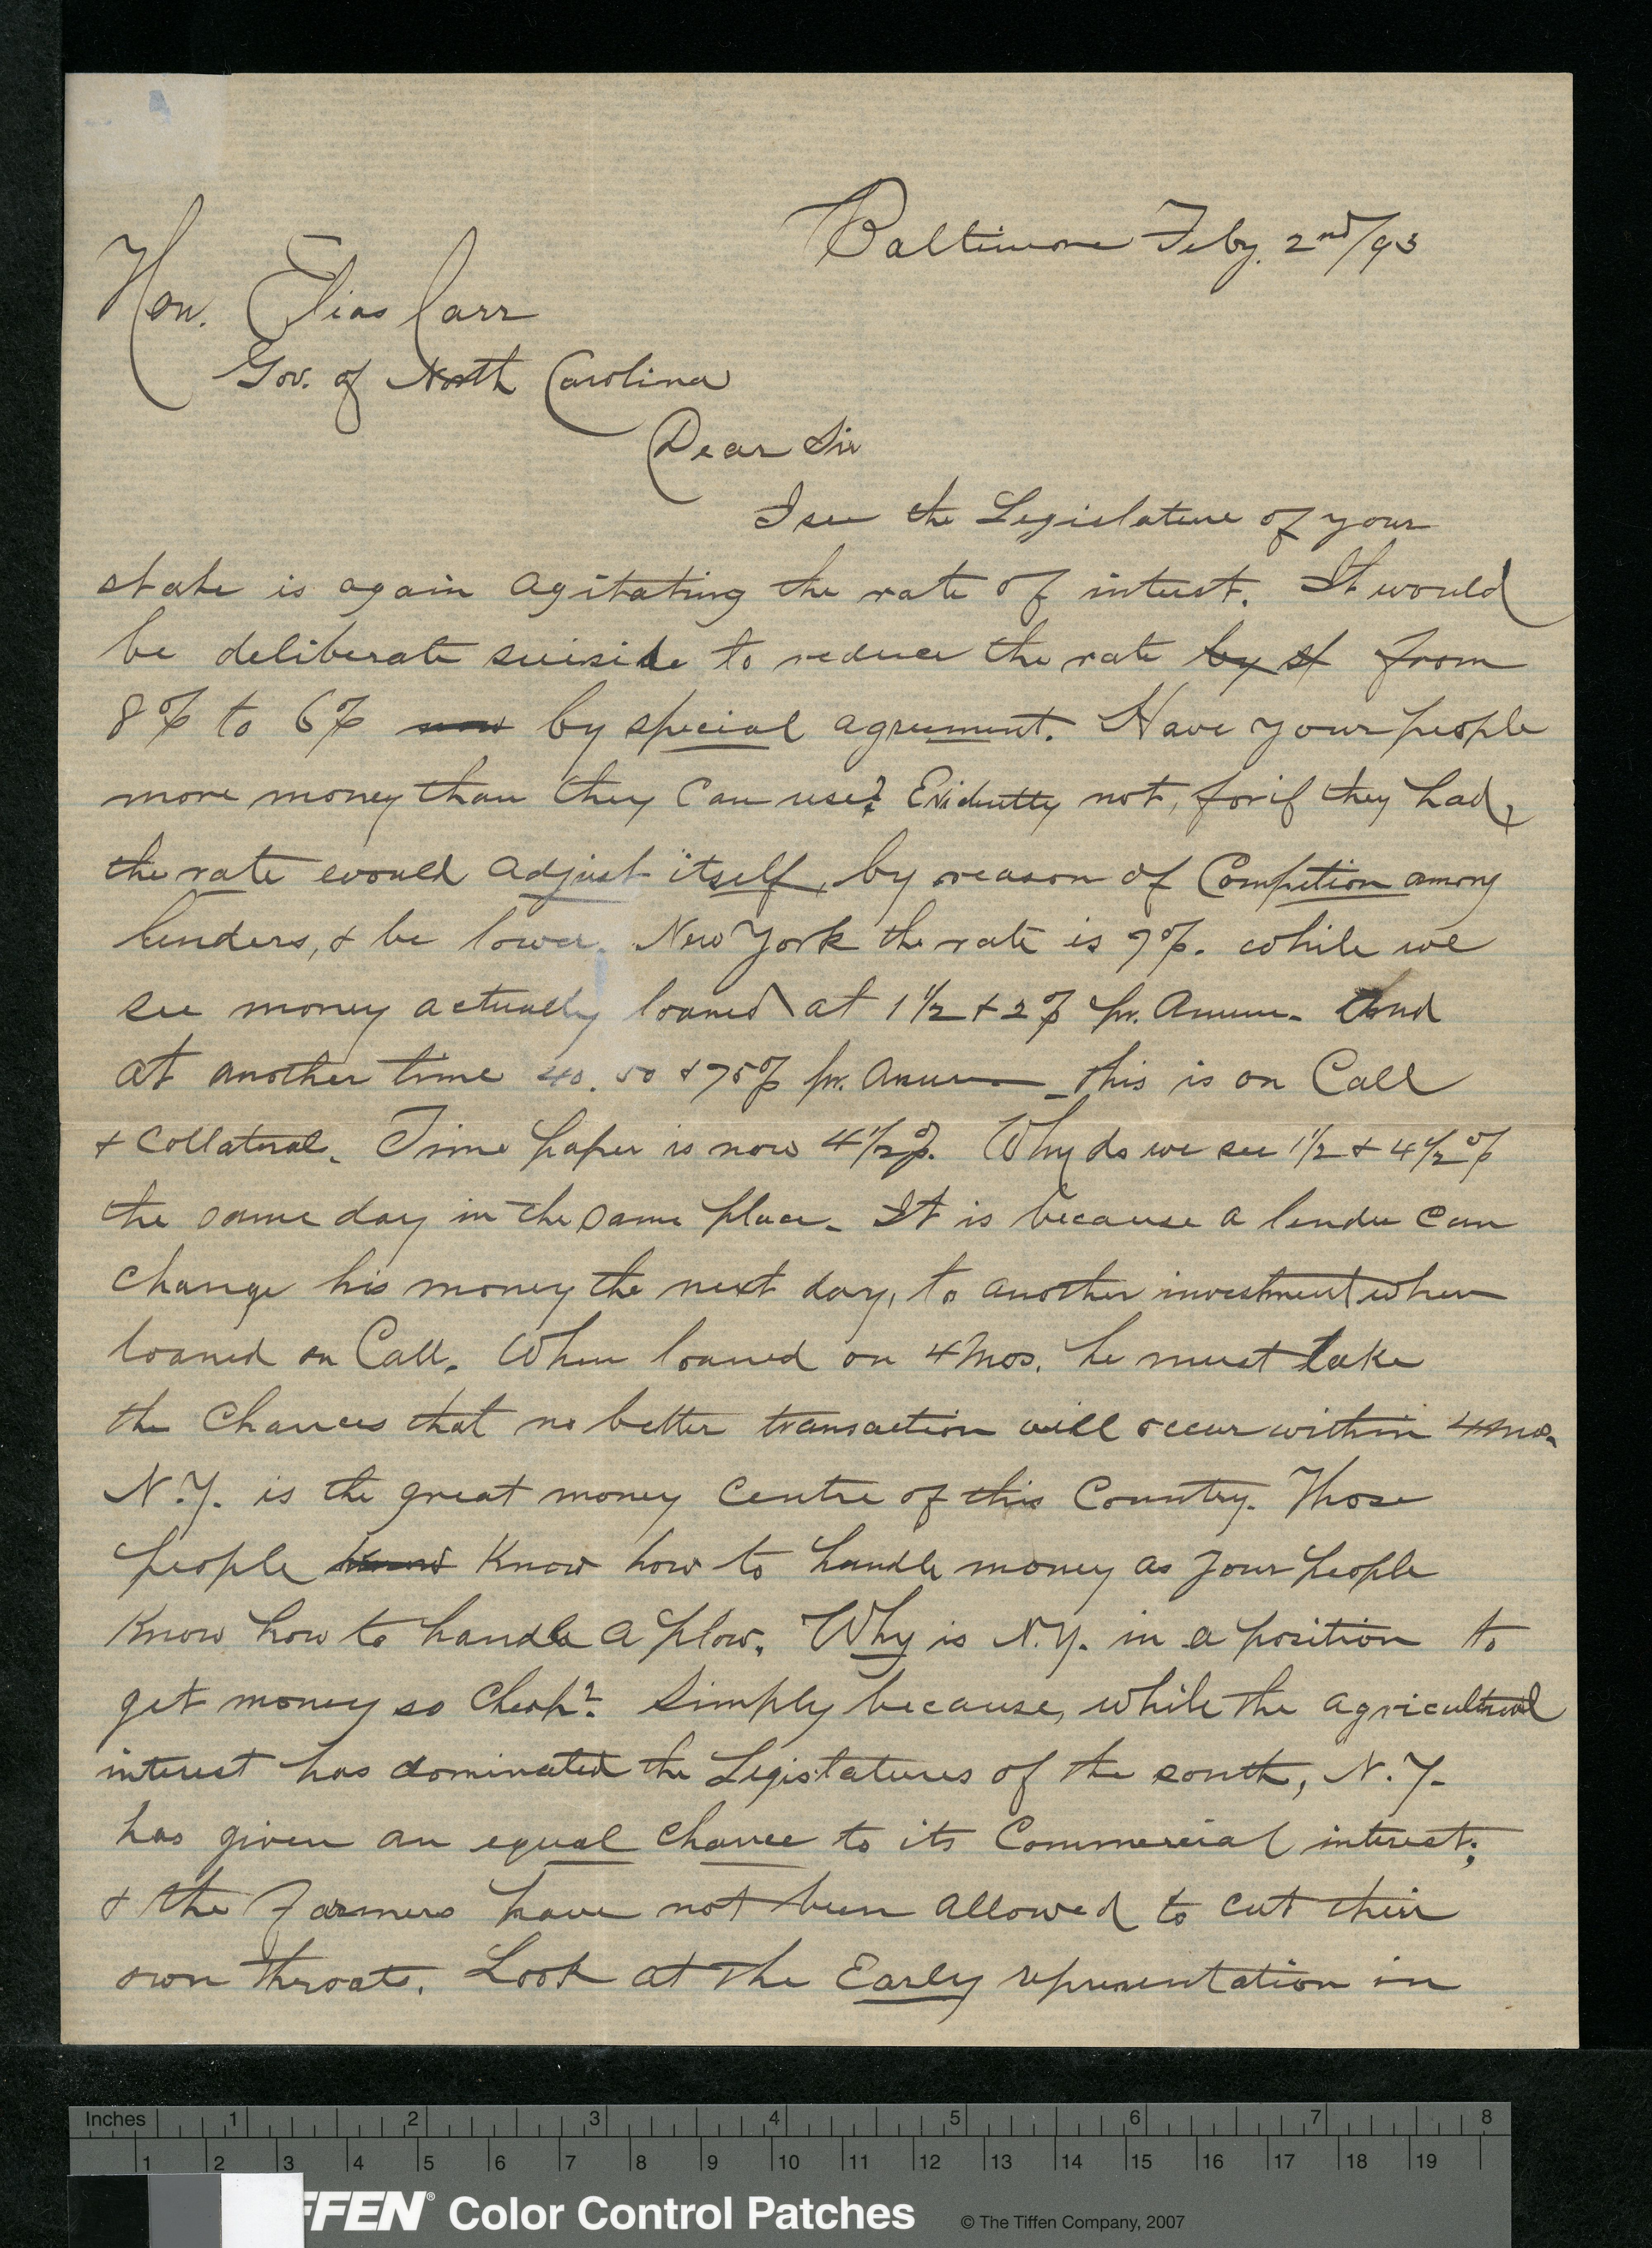 Baltimore Feby. 2nd/93
Hon. Elias Carr
Gov. of North Carolina
Dear Sir
I see the Legislature of your
state is again agitating the rate of interest. It would
be deliberate suicide to reduce the rate by st from
8% to 6% now by special agreement. Have your people
more money than they can use? Evidently not, for if they had,
the rate would adjust itself, by reason of Compition among
lenders, & be lower. New York the rate is 7%. while we
see money actually loaned at 1 1/2 & 2% pr. Annum. And
at another time 40. 50 & 75% pr. Annum - this is on Call
& Collateral. Time paper is now 4 1/2%. Why do we see 1 1/2 & 4 1/2 %
the same day in the same place. It is because a lender can
change his money the next day, to another investment when
loaned on Call. When loaned on 4 Mos. he must take
the Chances that no better transaction will occur within 4 mos.
N.Y. is the great money Centre of this Country. Those
people know Know how to handle money as your people
Know how to handle a plow. Why is N.Y. in a position to
get money so Cheap? Simply because, while the agricultural
interest has dominated the Legislatures of the south, N.Y.
has given an equal chance to its Commercial interest;
& the Farmers have not been allowed to cut their
own throats. Look at the Early representation in
Inches 1 2 3 4 5 6 7 8
1 2 3 4 5 6 7 8 9 10 11 12 13 14 15 16 17 18 19
FFEN® Color Control Patches © The Tiffen Company, 2007